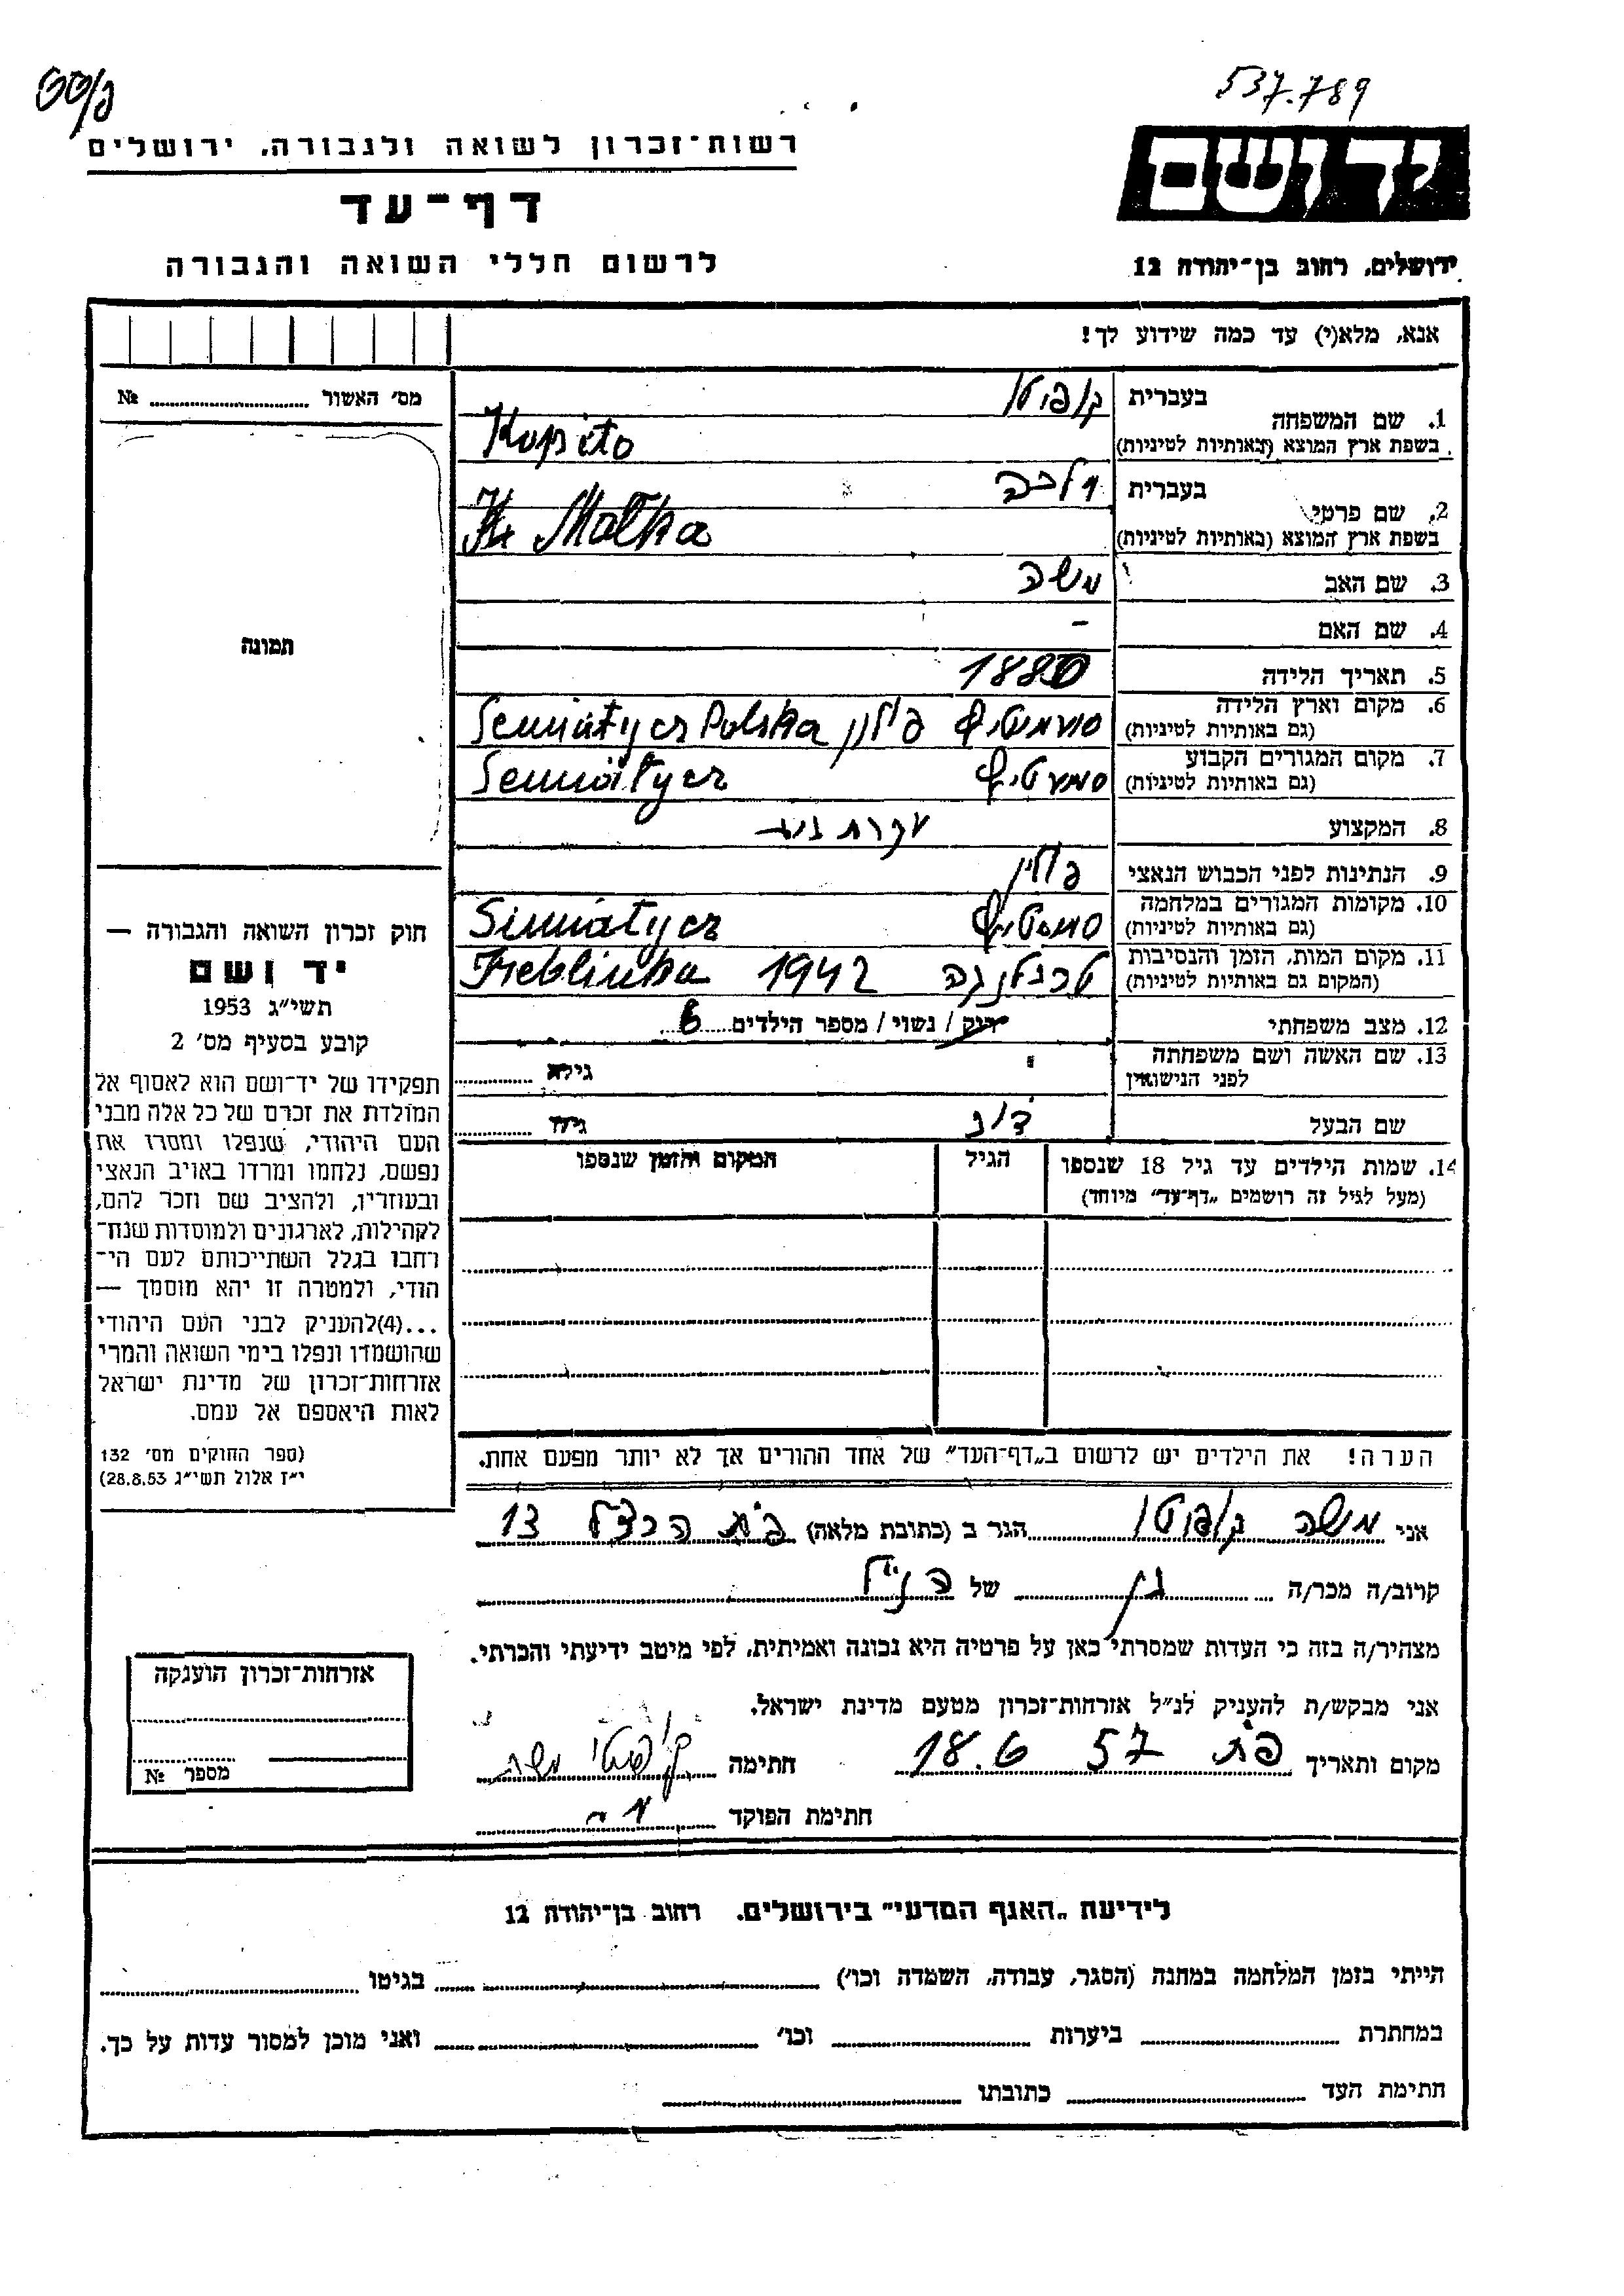 537.789
רשות־זכרון לשואה ולגבורה, ירושלים
יד ושם
דף־עד
לרשום חללי השואה והגבורה
ירושלים, רחוב בן־יהודה 12
אנא, מלא(י) עד כמה שידוע לך!
מס׳ האשור № 
1. שם המשפחה
בעברית
בשפת ארץ המוצא (באותיות לטיניות)
Kopito
2. שם פרטי
בעברית מלכה
בשפת ארץ המוצא (באותיות לטיניות)
Malka
3. שם האב משה
4. שם האם -
5. תאריך הלידה 1880
6. מקום וארץ הלידה
(גם באותיות לטיניות)
פולין Semiatycz Polska
7. מקום המגורים הקבוע
(גם באותיות לטיניות)
Semiatycz
8. המקצוע עקרת בית
9. הנתינות לפני הכבוש הנאצי פולין
10. מקומות המגורים במלחמה
(גם באותיות לטיניות)
Simiatycz
11. מקום המות, הזמן והנסיבות
(המקום גם באותיות לטיניות)
טרבלינקה 1942 Treblinka
12. מצב משפחתי רווק / נשוי / מספר הילדים 6
13. שם האשה ושם משפחתה
לפני הנישואין
גילה
שם הבעל גילו
14. שמות הילדים עד גיל 18 שנספו
(מעל לגיל זה רושמים „דף־עד״ מיוחד)
הגיל
המקום והזמן שנספו
תמונה
חוק זכרון השואה והגבורה —
יד ושם
תשי״ג 1953
קובע בסעיף מס׳ 2
תפקידו של יד־ושם הוא לאסוף אל
המולדת את זכרם של כל אלה מבני
העם היהודי, שנפלו ומסרו את
נפשם, נלחמו ומרדו באויב הנאצי
ובעוזריו, ולהציב שם וזכר להם,
לקהילות, לארגונים ולמוסדות שנח־
רבו בגלל השתייכותם לעם הי־
הודי, ולמטרה זו יהא מוסמך —
...(4)להעניק לבני העם היהודי
שהושמדו ונפלו בימי השואה והמרי
אזרחות־זכרון של מדינת ישראל
לאות היאספם אל עמם.
(ספר החוקים מס׳ 132
י״ז אלול תשי״ג 28.8.53)
הערה! את הילדים יש לרשום ב„דף־העד״ של אחד ההורים אך לא יותר מפעם אחת.
אני משה הגר ב (כתובת מלאה) פ״ת הרצל 13
קרוב/ה מכר/ה בן של הנ״ל
מצהיר/ה בזה כי העדות שמסרתי כאן על פרטיה היא נכונה ואמיתית, לפי מיטב ידיעתי והכרתי.
אני מבקש/ת להעניק לנ״ל אזרחות־זכרון מטעם מדינת ישראל.
מקום ותאריך פ״ת 18.6 57 חתימה משה
חתימת הפוקד
אזרחות־זכרון הוענקה
מספר №
לידיעת „האגף המדעי״ בירושלים. רחוב בן־יהודה 12
הייתי בזמן המלחמה במחנה (הסגר, עבודה, השמדה וכו׳) בגיטו
במחתרת ביערות וכו׳ ואני מוכן למסור עדות על כך.
חתימת העד כתובתו